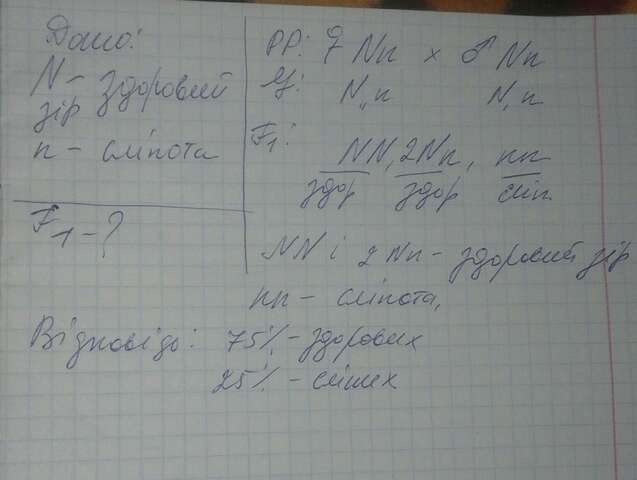 Дано:
N - здоровий
зір
n - сліпота
F1 - ?
PP: ♀ Nn x ♂ Nn
G: N, n N, n
F1:
NN, 2Nn, nn
здор здор сліп.
NN і 2Nn - здоровий зір
nn - сліпота,
Відповідь: 75% - здорових
25% - сліпих